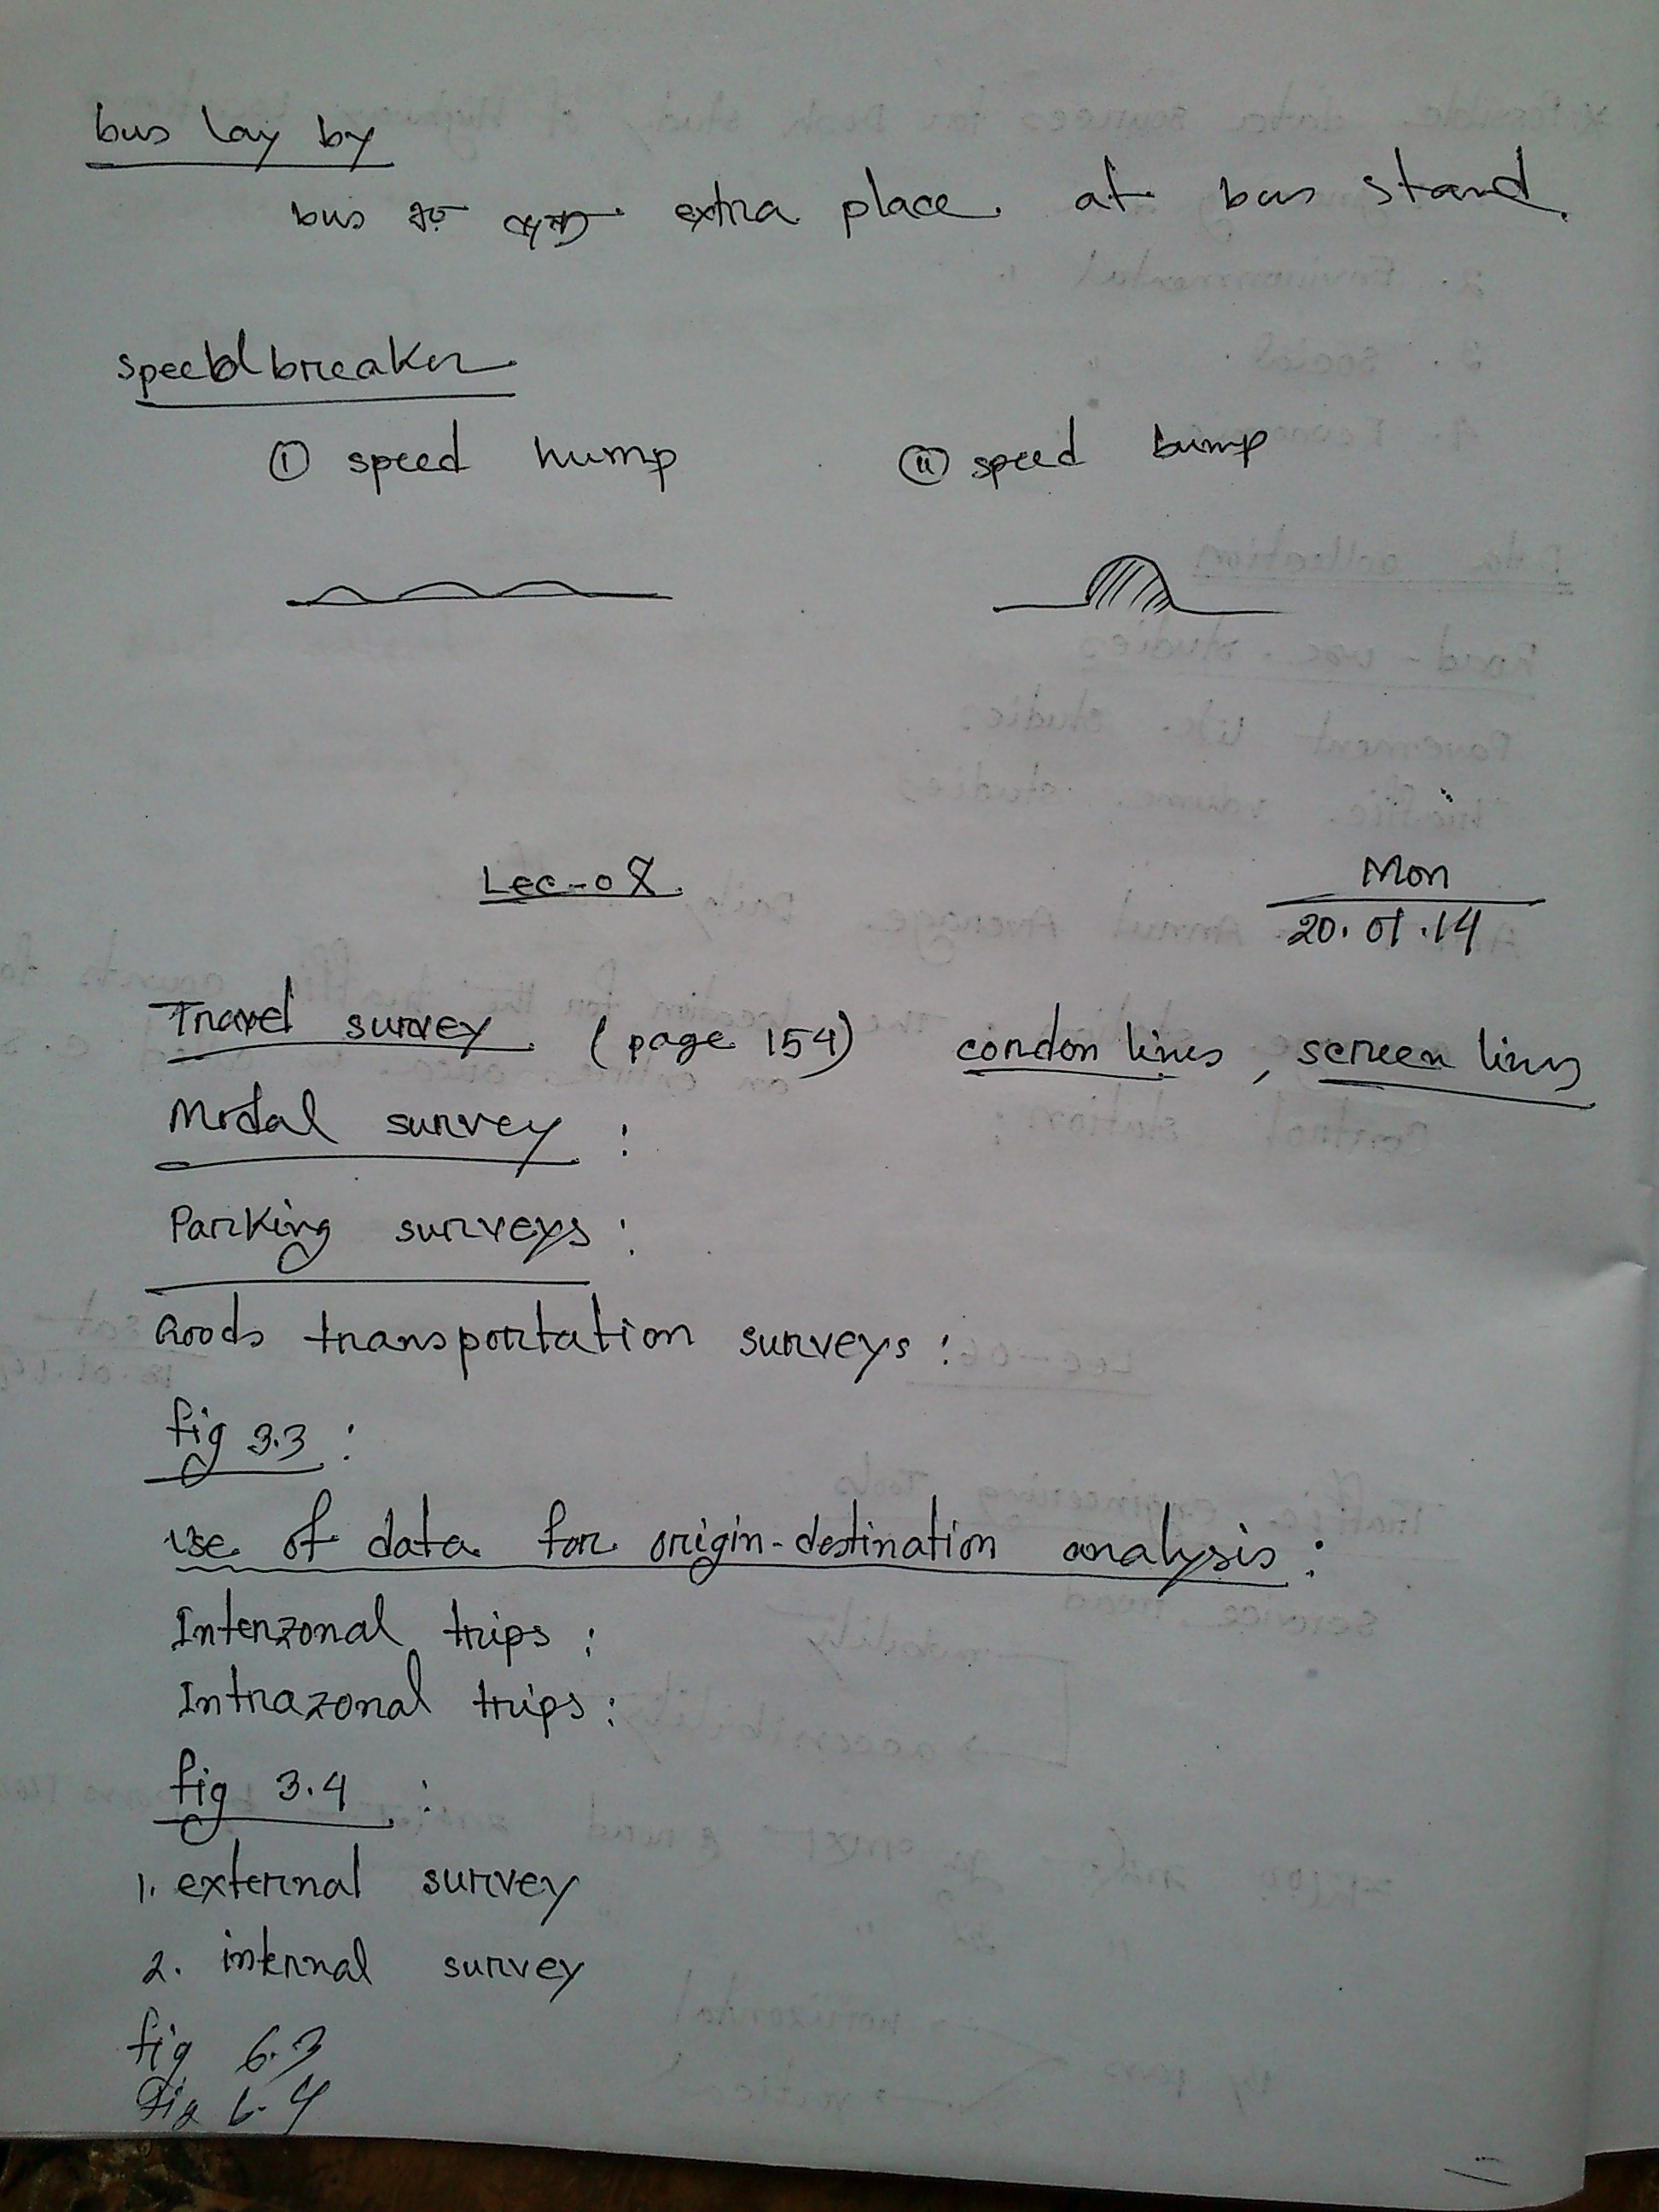 bus lay by
bus extra place at bus stand.
speed breaker
(i) speed hump (ii) speed bump
Lec-08 Mon
20.01.14
Travel survey (page 154) cordon lines, screen lines
Modal survey :
Parking surveys :
Goods transportation surveys :
fig 3.3 :
use of data for origin-destination analysis :
Interzonal trips :
Intrazonal trips :
fig 3.4 :
1. external survey
2. internal survey
fig 6.3
Fig 6.4